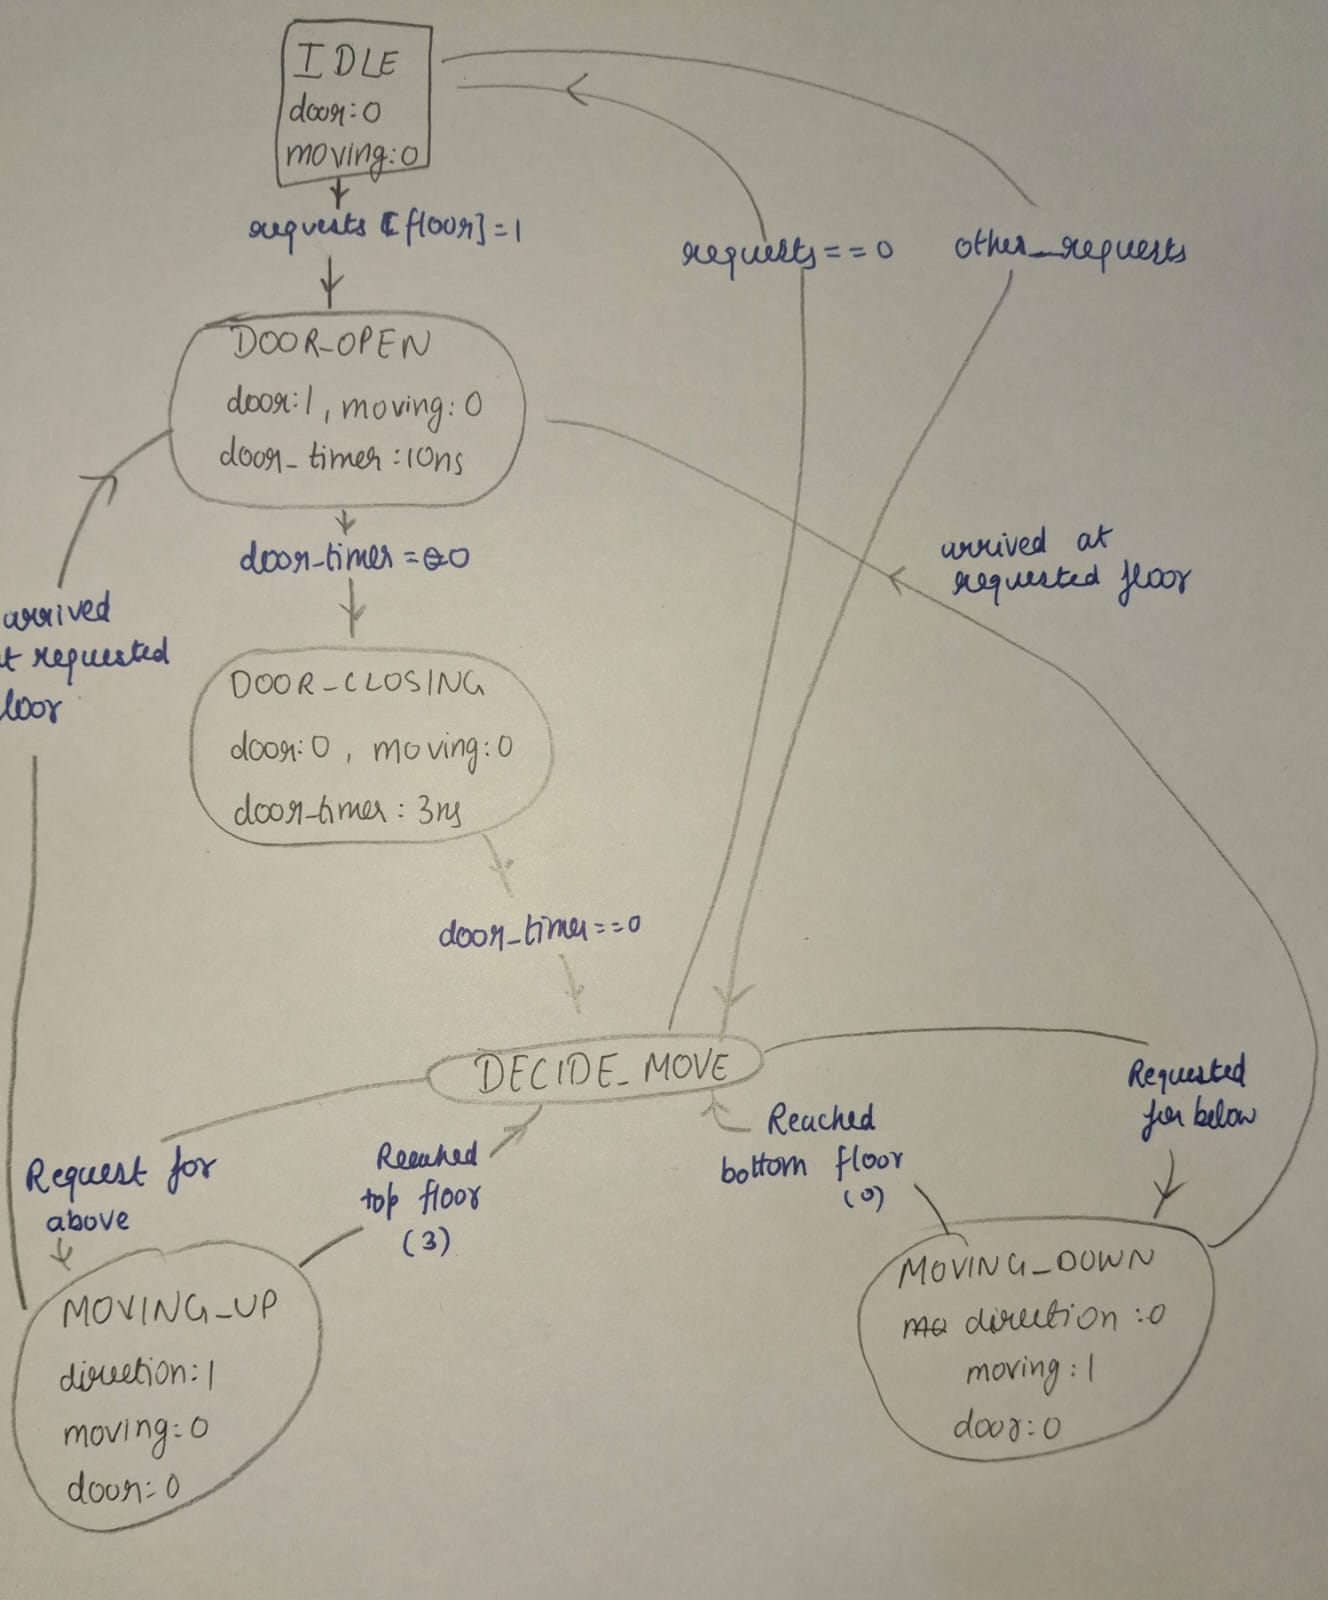 IDLE
door:0
moving:0
requests [floor]=1
requests==0
other_requests
DOOR_OPEN
door:1, moving:0
door_timer:10ns
door-timer=00
arrived at
requested floor
arrived
t requested
loor
DOOR_CLOSING
door:0, moving:0
door-timer: 3ns
door_timer==0
DECIDE_MOVE
Requested
for below
Reached
bottom floor
(0)
Reached
top floor
(3)
Request for
above
MOVING_UP
direction:1
moving:0
door:0
MOVING_DOWN
direction:0
moving:1
door:0